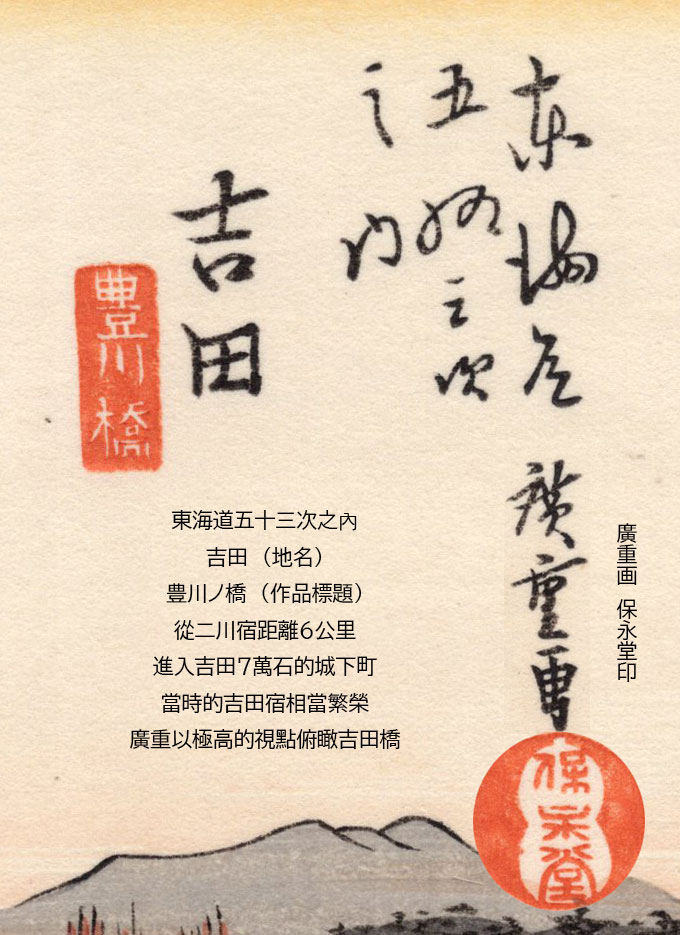 東海道
五拾三次
之内
吉田
豊川橋
廣重画
保永堂
東海道五十三次之內
吉田（地名）
豊川ノ橋（作品標題）
從二川宿距離6公里
進入吉田7萬石的城下町
當時的吉田宿相當繁榮
廣重以極高的視點俯瞰吉田橋
廣重画 保永堂印